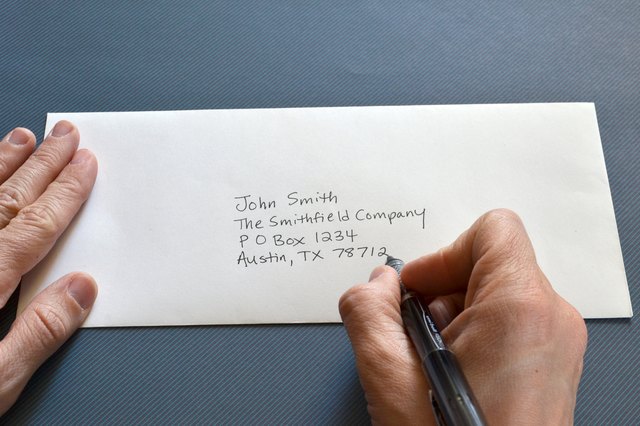 John Smith
The Smithfield Company
P O Box 1234
Austin, TX 78712